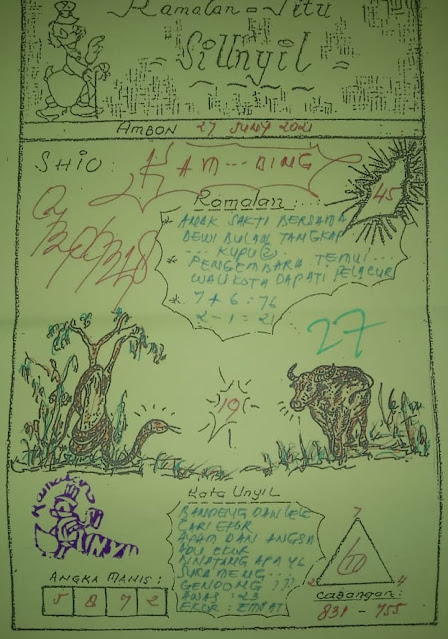 Ramalan = Jitu
SiUnyil
AMBON 27 JUNY 2021
SHIO :
KAM... BING
45
Ramalan :
* ANAK SAKTI BERSAMA
DEWI BULAN TANGKAP
... KUPU②
* PENGEMBARA TEMUI...
WALIKOTA DAPATI PELACUR
* 7 + 6 : 76
2 - 1 = 21
27
19
Kata Unyil
BANDENG DAN LELE
CARI EKOR
AYAM DAN ANGSA
ADU EKOR
BINATANG APA YG
SUKA MENG...
GENDONG ???
AWAS : 23
EKOR : EMPAT
7
10
2 4
ANGKA MANIS :
5 8 7 2
CADANGAN :
831 - 755